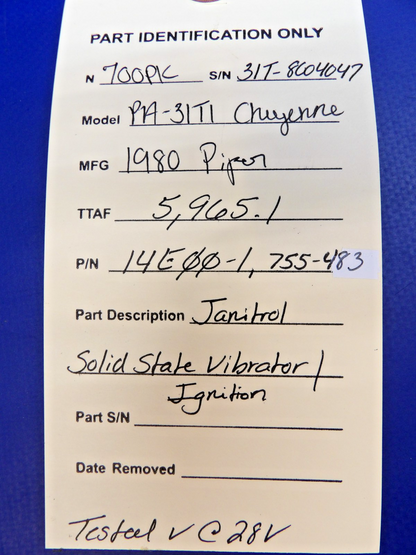 PART IDENTIFICATION ONLY
N 700PK S/N 31T-8604047
Model PA-31T1 Cheyenne
MFG 1980 Piper
TTAF 5,965.1
P/N 14E00-1, 755-483
Part Description Janitrol
Solid State Vibrator /
Ignition
Part S/N
Date Removed
Tested √ @ 28V